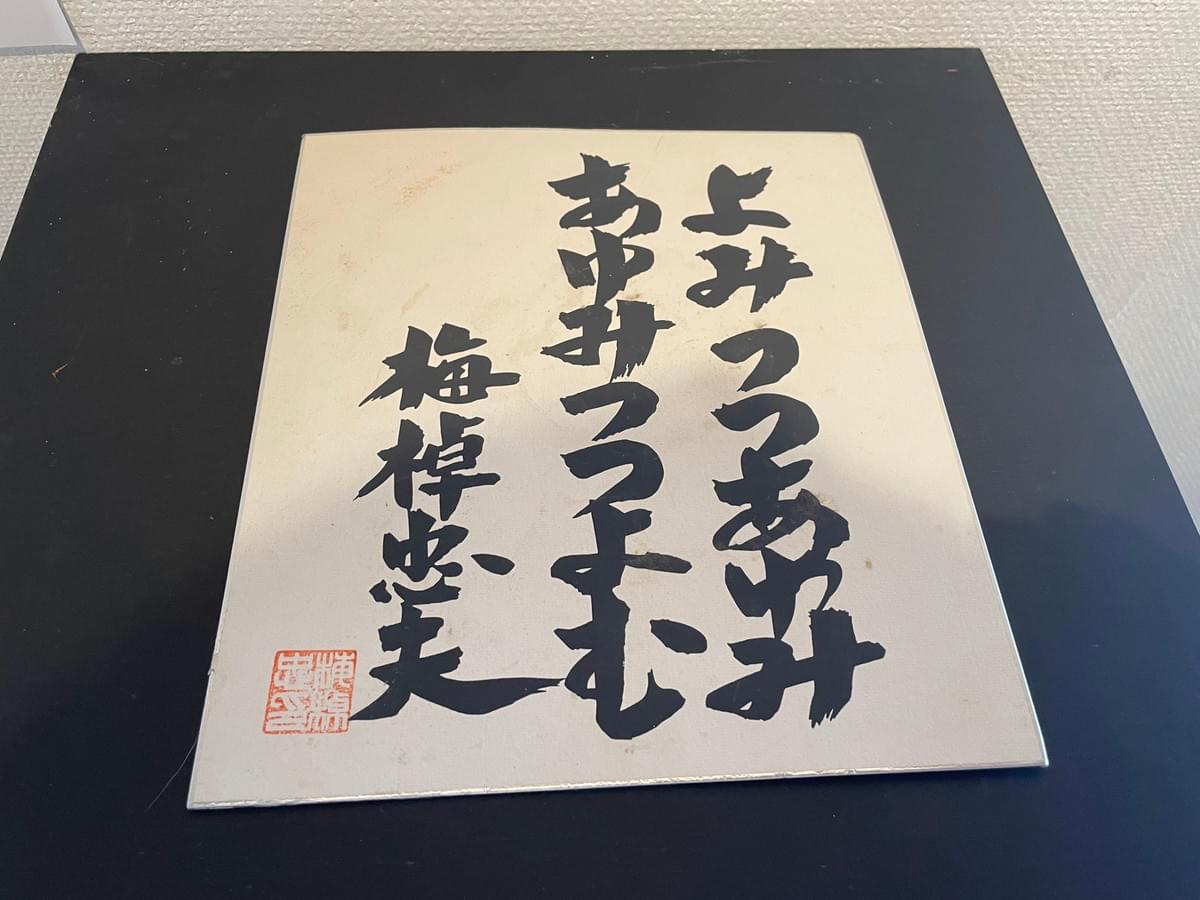 よみつつあゆみ
あゆみつつよむ
梅棹忠夫